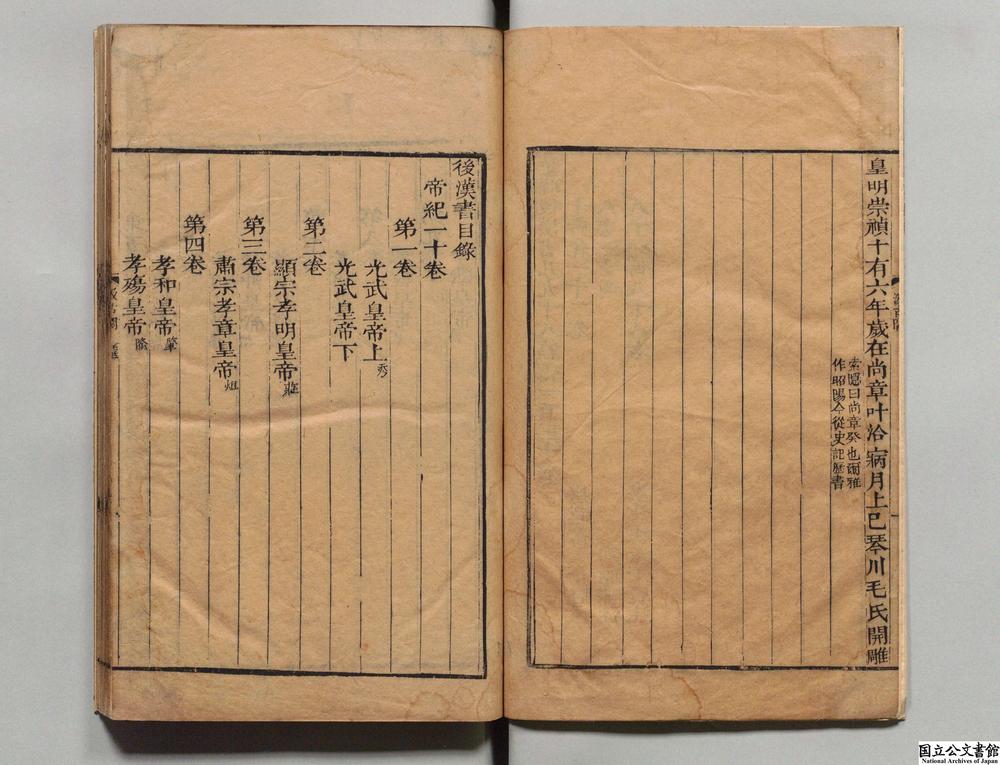 皇明崇禎十有六年歲在尚章叶洽病月上巳琴川毛氏開雕
索隱曰尚章癸也爾雅
作昭陽今從史記曆書
後漢書目錄
帝紀一十卷
第一卷
光武皇帝上 秀
光武皇帝下
第二卷
顯宗孝明皇帝 莊
第三卷
肅宗孝章皇帝 炟
第四卷
孝和皇帝 肇
孝殤皇帝 隆
国立公文書館
National Archives of Japan